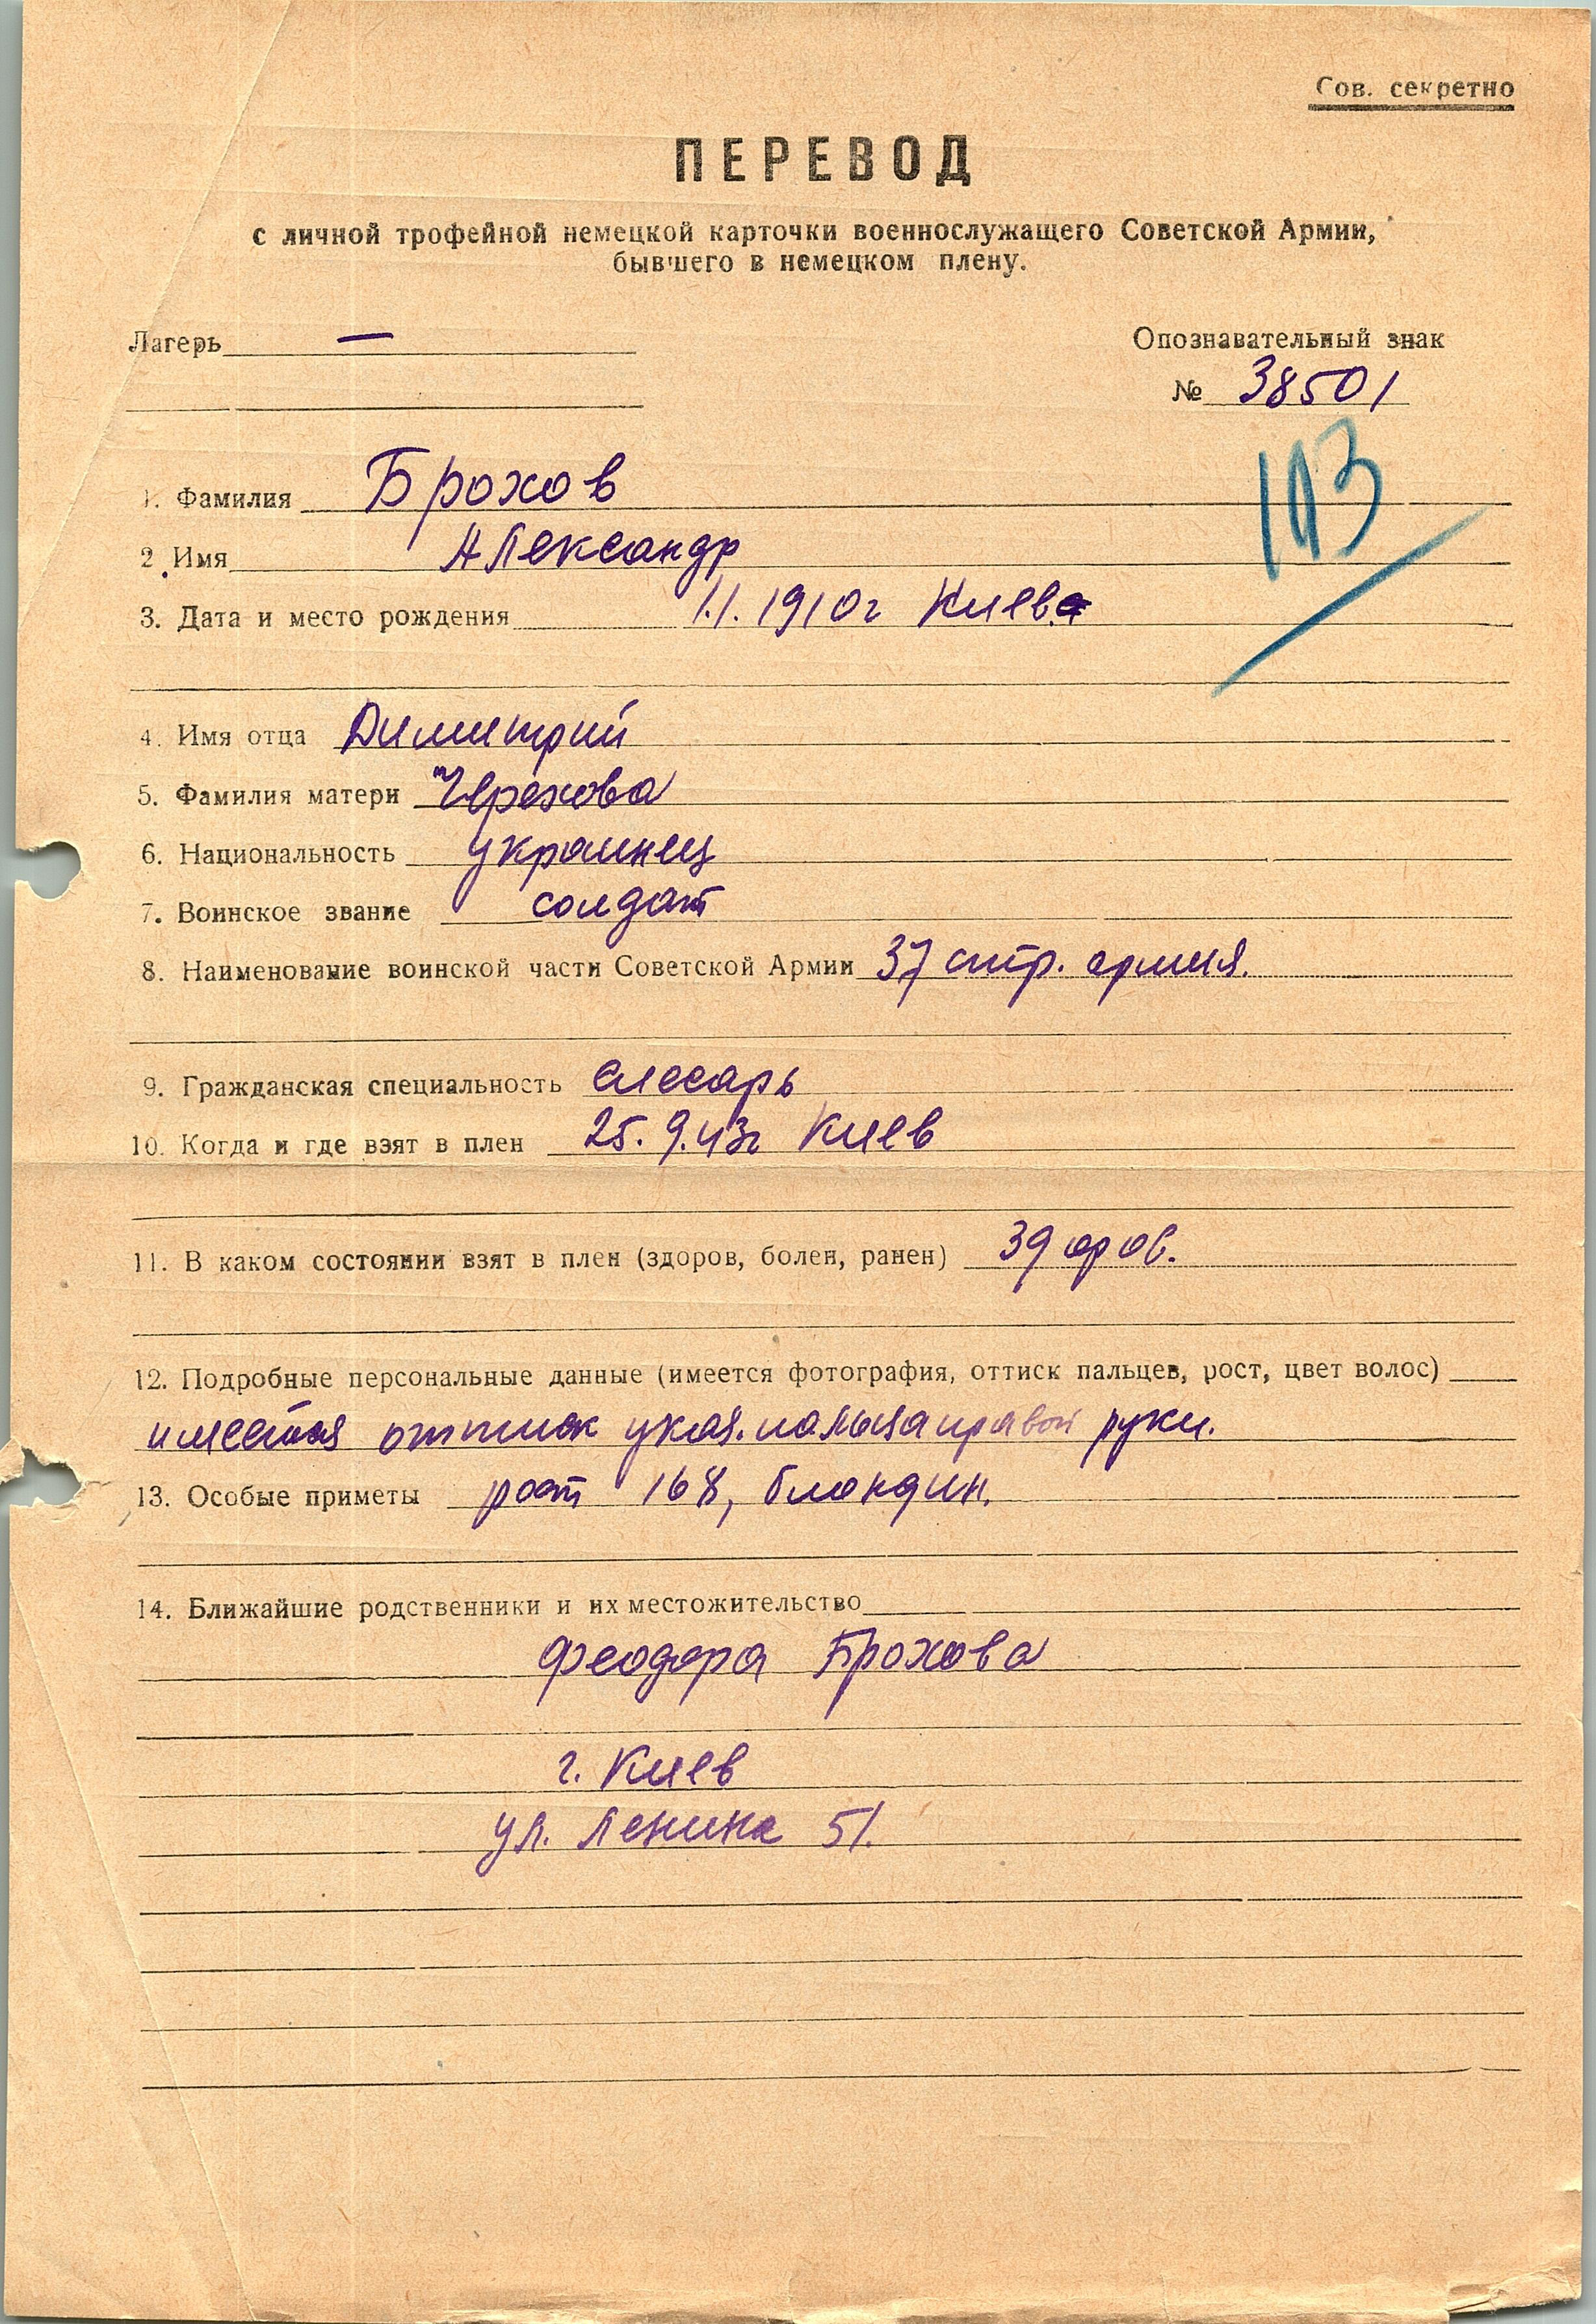 Сов. секретно
ПЕРЕВОД
с личной трофейной немецкой карточки военнослужащего Советской Армии,
бывшего в немецком плену.
Лагерь —
Опознавательный знак
№ 38501
103
1. Фамилия Брохов
2. Имя Александр
3. Дата и место рождения 1.1.1910г Киев
4. Имя отца Димитрий
5. Фамилия матери Черехова
6. Национальность украинец
7. Воинское звание солдат
8. Наименование воинской части Советской Армии 37 стр. армия.
9. Гражданская специальность слесарь
10. Когда и где взят в плен 25.9.43г Киев
11. В каком состоянии взят в плен (здоров, болен, ранен) здоров.
12. Подробные персональные данные (имеется фотография, оттиск пальцев, рост, цвет волос)
имеется оттиск указ. пальца правой руки.
13. Особые приметы рост 168, блондин.
14. Ближайшие родственники и их местожительство
Феодора Брохова
г. Киев
ул. Ленина 51.